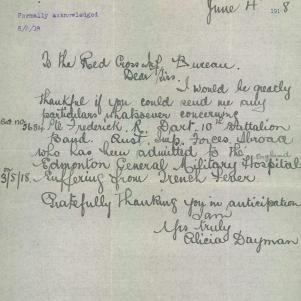 Formally acknowledged
6/8/18
June 4 1918
To the Red Cross Inf. Bureau.
Dear Sirs.
I would be greatly
thankful if you could send me any
particulars whatsoever concerning
3684 Pte Frederick R. Dart. 10th Battalion
Band. Aust. Imp. Forces Abroad
who has been admitted to the
England
Edmonton General Military Hospital
3/5/18. Suffering from Trench Fever
Gratefully Thanking you in anticipation
I am
Yrs truly
Alicia Dayman